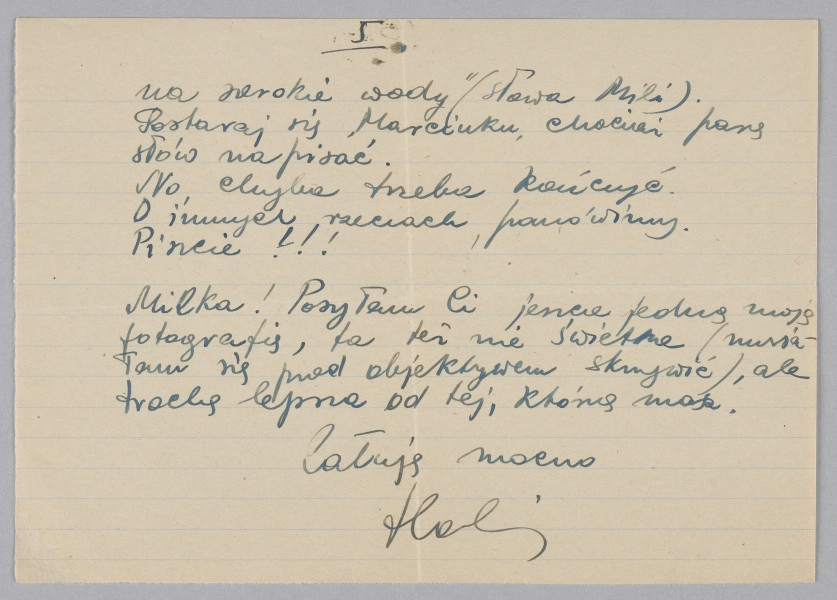 5
na szerokie wody" (słowa Mili).
Postaraj się, Marciuku, chociaż parę
słów napisać.
No, chyba trzeba kończyć.
O innych rzeczach pomówimy.
Piszcie !!!
Milka! Posyłam Ci jeszcze jedną moją
fotografię, ta też nie świetna (musia-
łam się przed objektywem skrzywić), ale
trochę lepsza od tej, którą masz.
Całuję mocno